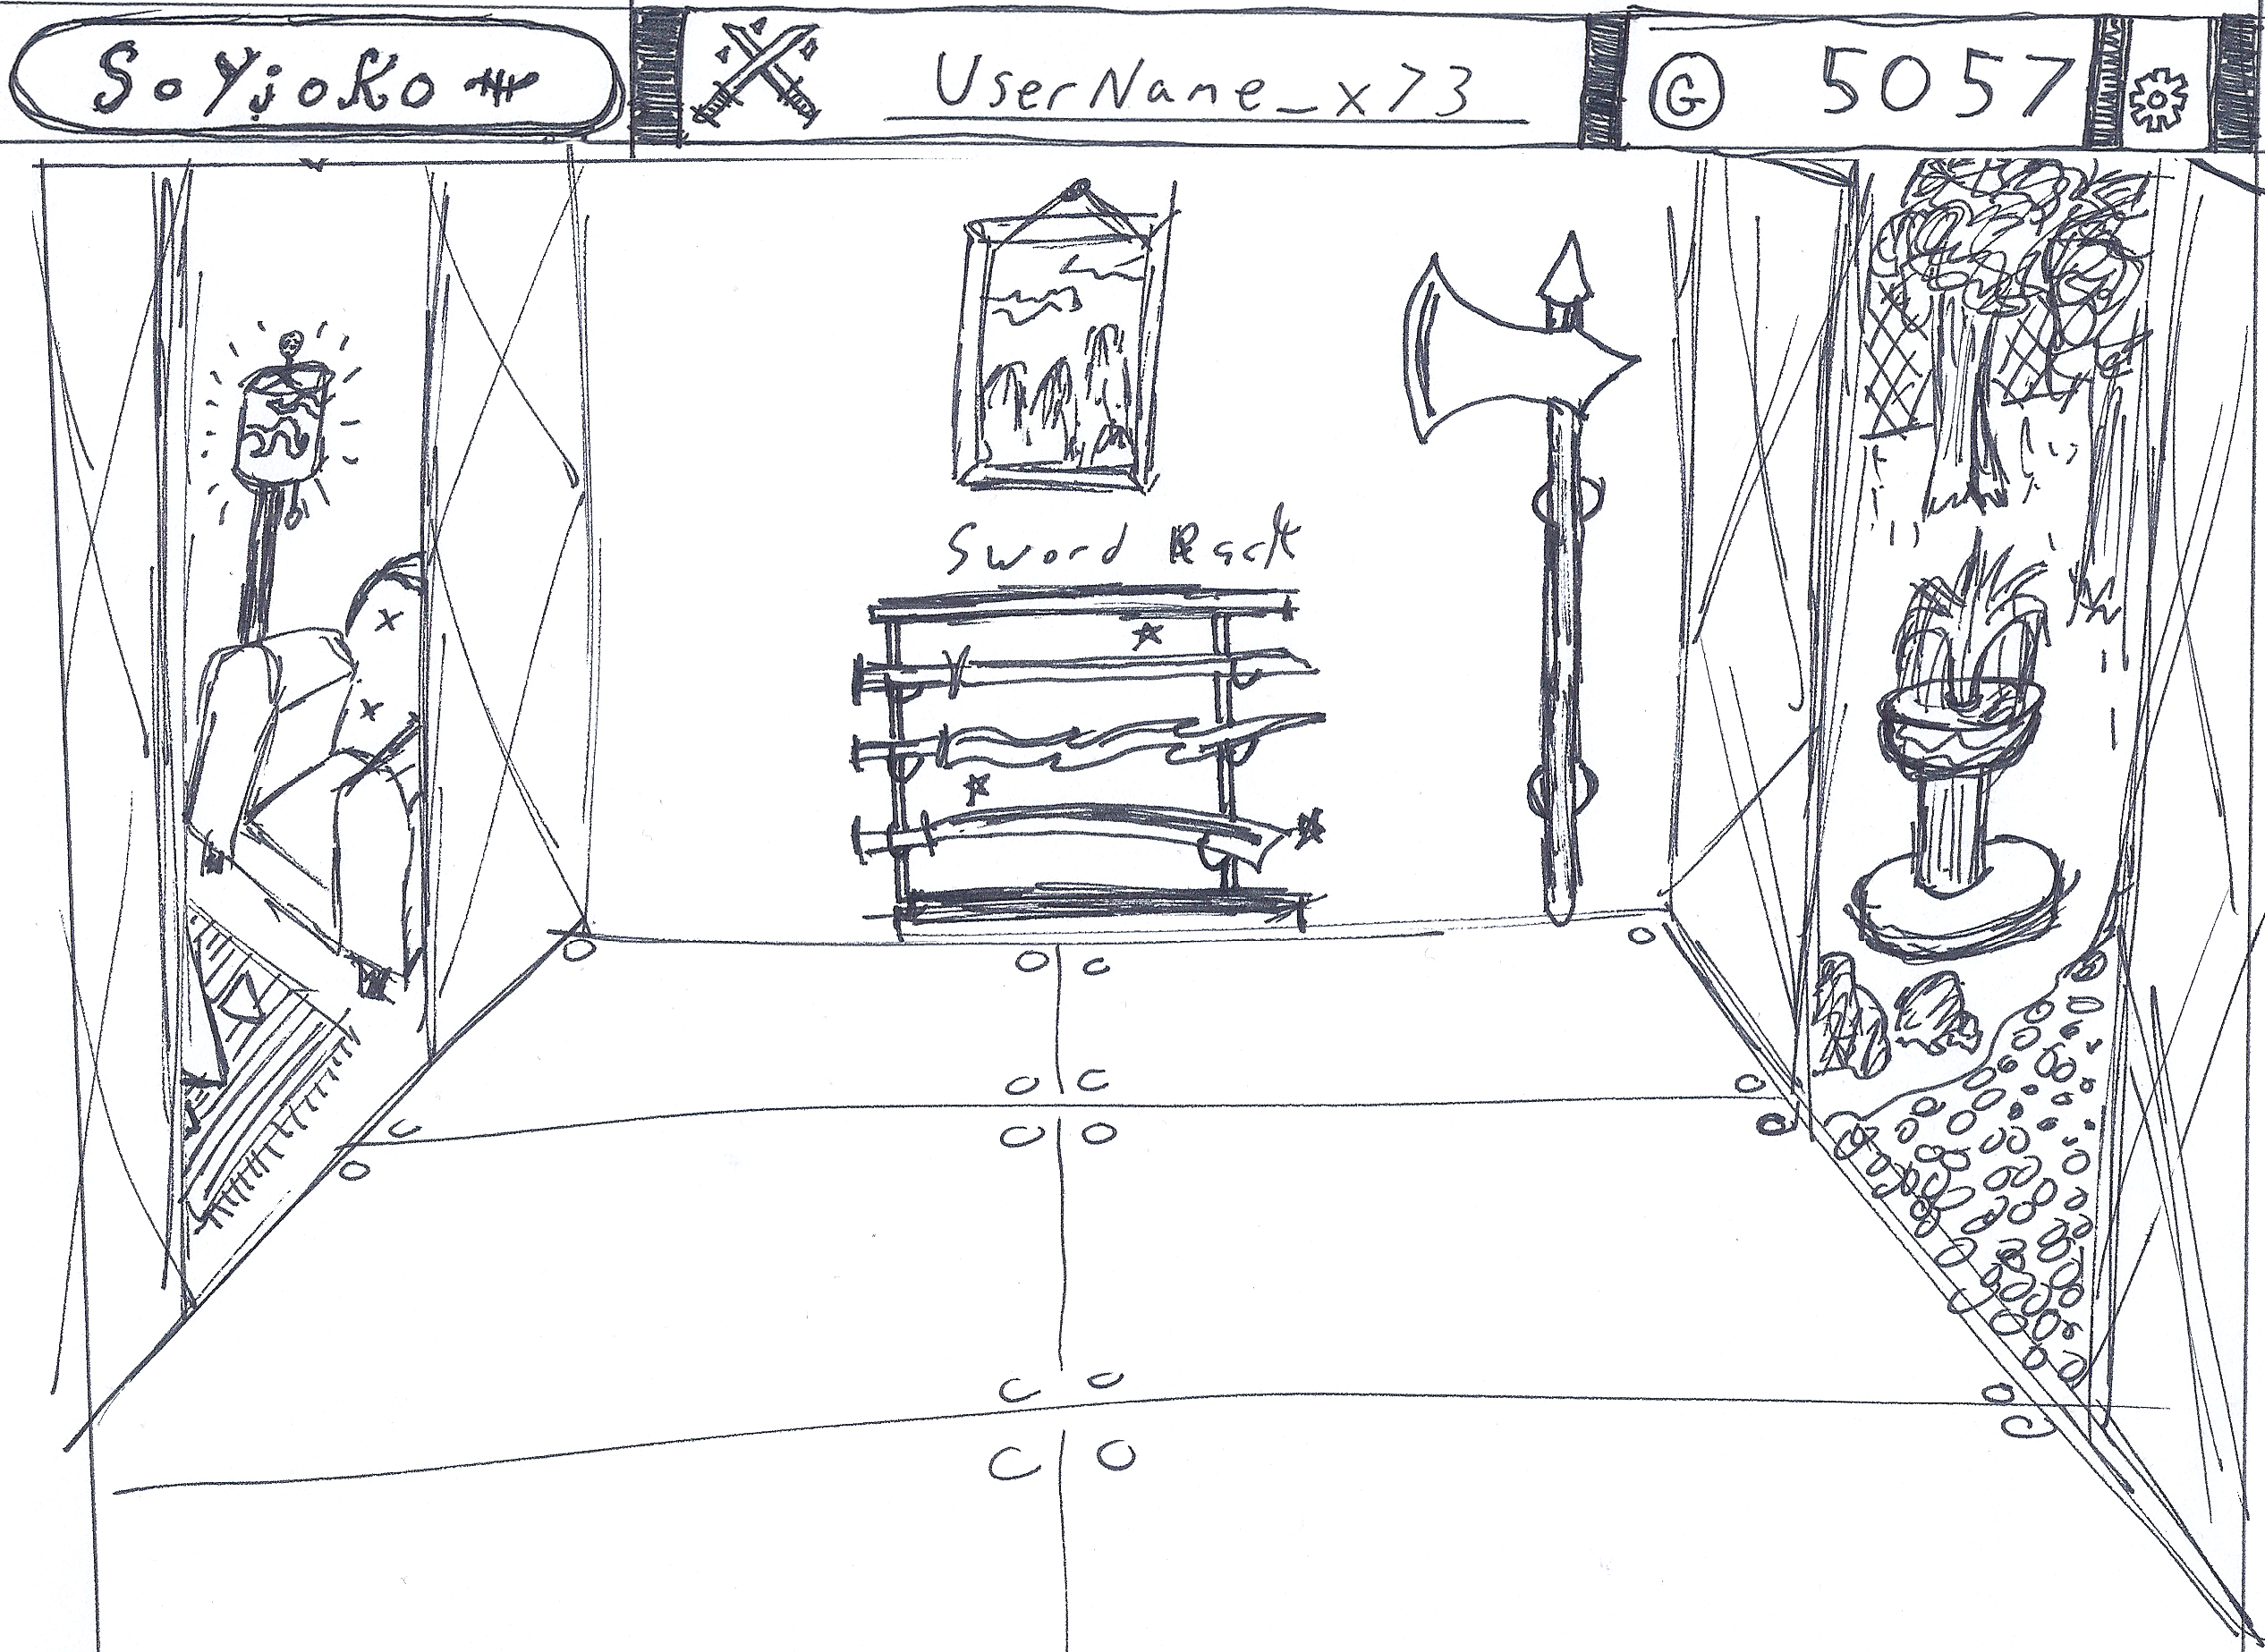 SoYjoKo
UserName_x73
G 5057
Sword Rack